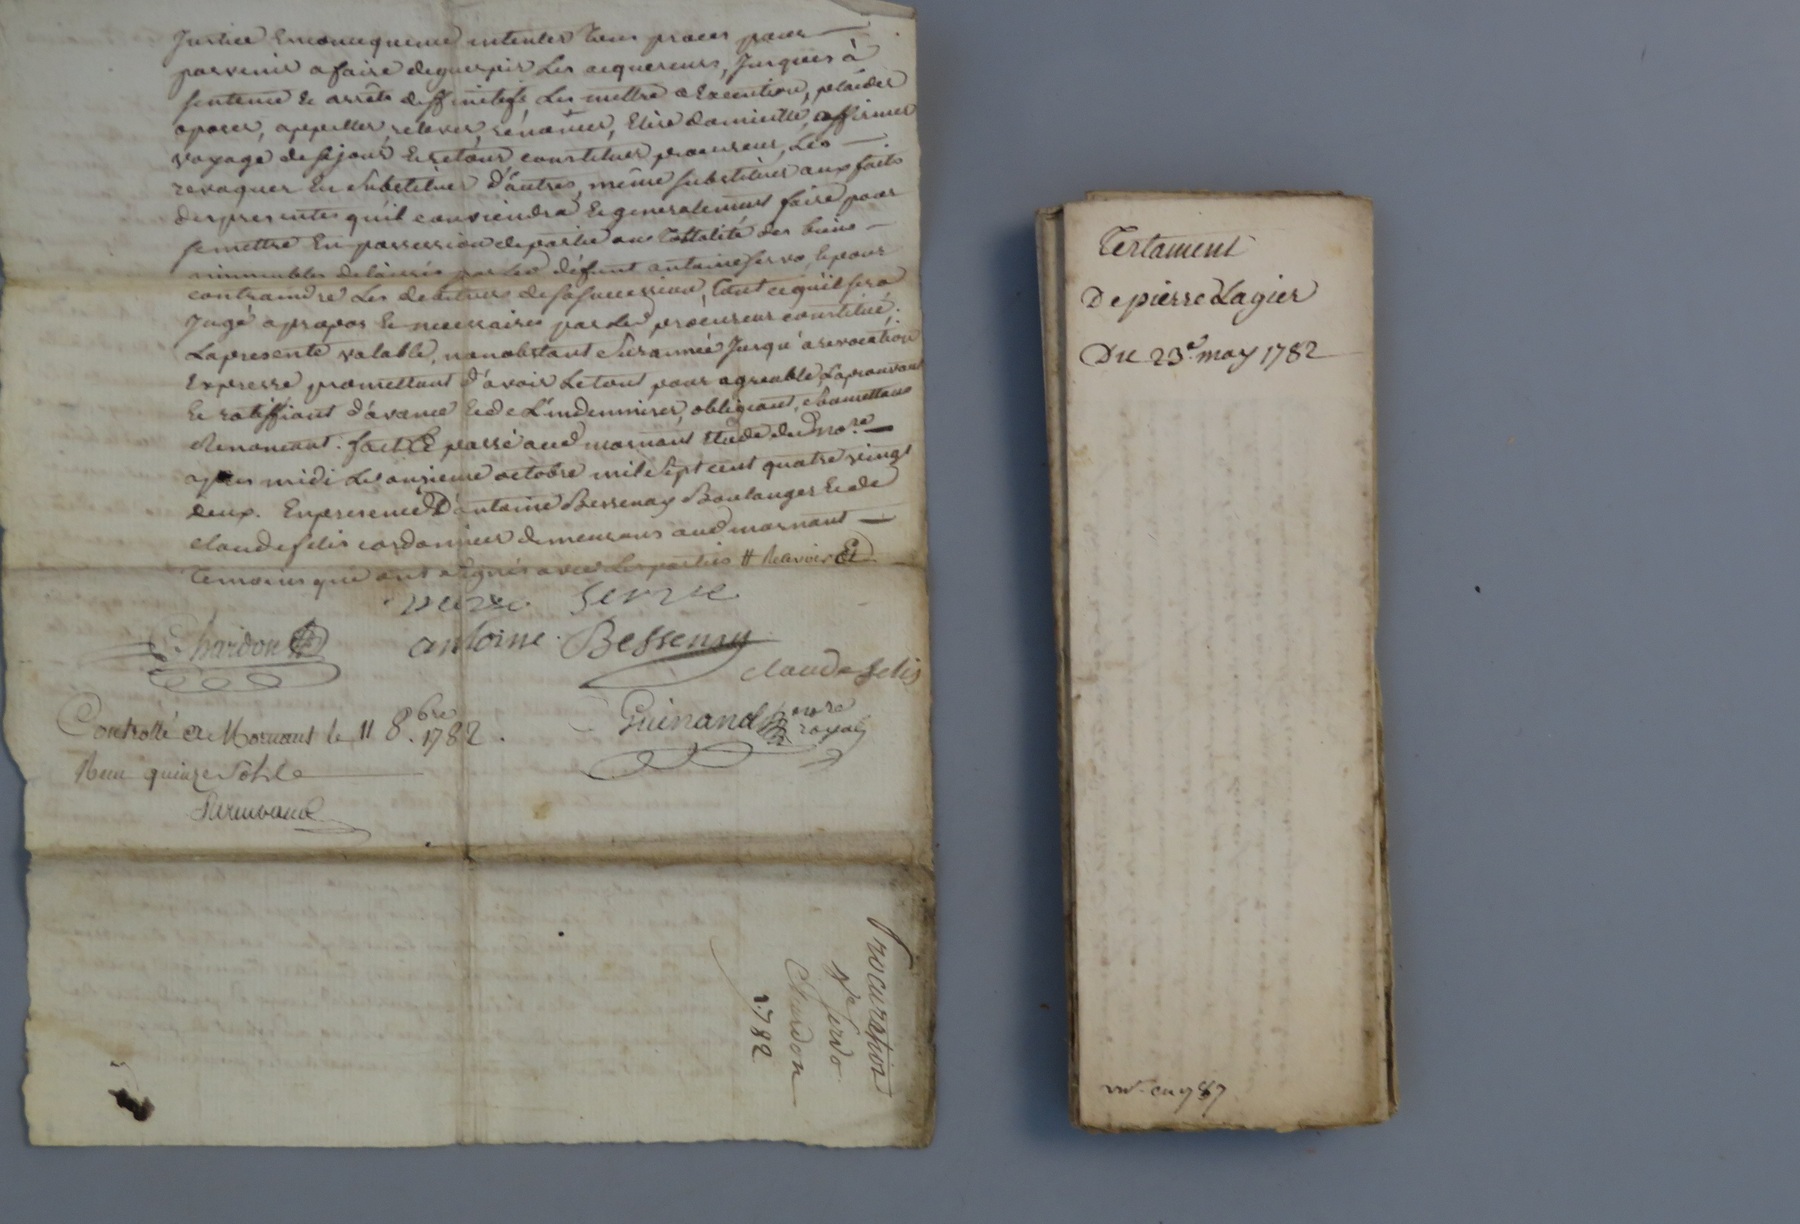 Justice Enconcequence intenter tous proces pour
parvenir a faire deguerpir Les acquereurs, Jusques à
sentence Et arrêts deffinitifs, Les mettre a Execution, plaider
oposer, appeller, relever, rénoncer, Elire domicille, affirmer
voyage de sejour Et retour, constituer procureur, Les
revoquer En substituer d'autres, même substituer aux faits
des presentes qu'il conviendra Et generalement faire pour
se mettre En possession de partie ou Tottalité des biens
immeubles delaissés par Led défunt antoine servo, Et pour
contraindre Les debiteurs de sa succession, tout ce qu'il sera
Jugé apropos Et necessaires par Led procureur constitué,
La presente valable, nonobstant Surannée Jusqu'a revocation
Expresse promettant d'avoir Le tout pour agreable, L'aprouvant
Et ratiffiant d'avance Et de L'indemniser, obligeant, Soumettant
Renoncant. fait Et passé aud mornant Etude du No.re
apres midi Le onzieme octobre mil Sept cent quatre vingt
deux. En presence D'antoine Bessenay Boulanger Et de
claude felis cordonnier demeurans aud mornant
Temoins qui ont signés avec Les parties # Recevoir Et
Chardon
antoine Bessenay
claude felis
Guinand no.re royal
Controllé a Mornant le 11 8.bre 1782.
Recu quinze Sols
Procuration
s.r servo
Chardon
1782
Testament
De pierre Lagier
Du 23.e may 1782